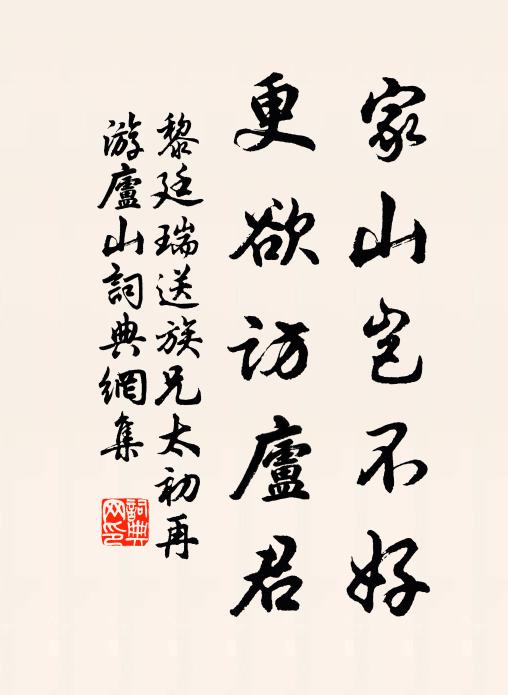 家山岂不好
更欲访廬君
黎廷瑞送族兄太初再
游廬山詞典網集
詞典
网印